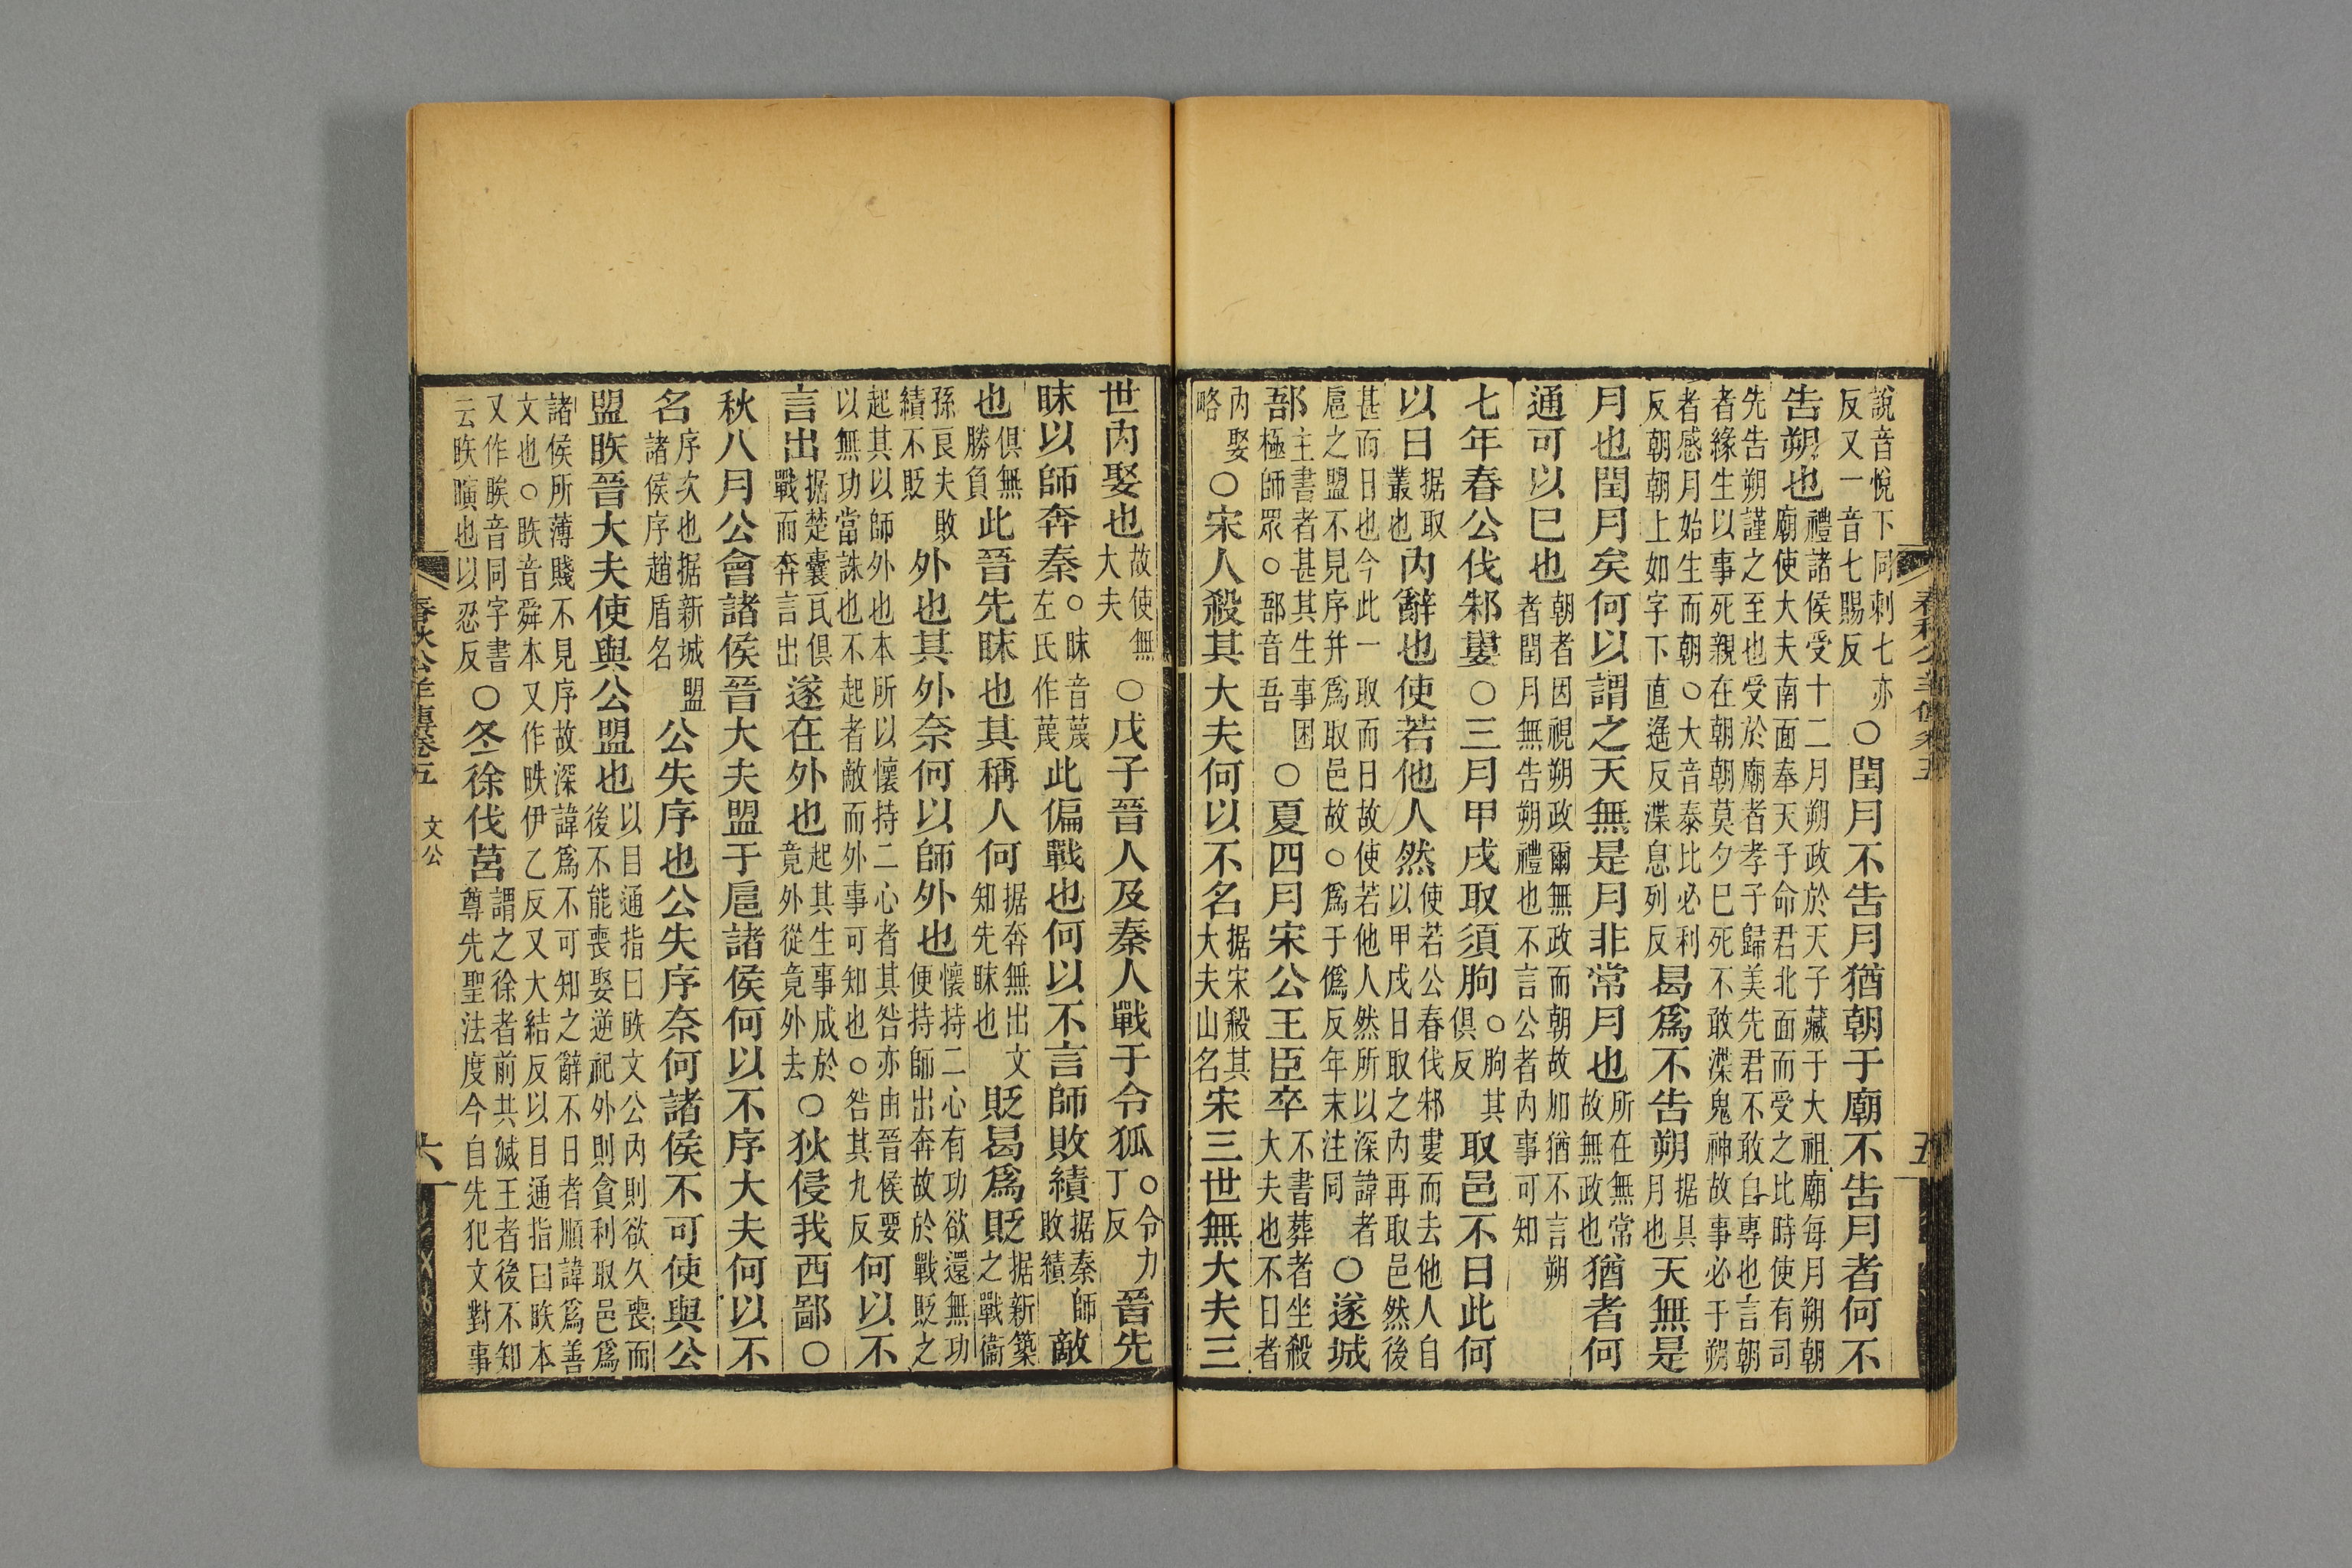 說音悅下同刺七亦反又一音七賜反○閏月不告月猶朝于廟不告月者何不
告朔也禮諸侯受十二月朔政於天子藏于大祖廟每月朔朝廟使大夫南面奉天子命君北面而受之比時使有司
先告朔謹之至也受於廟者孝子歸美先君不敢自專也言朝者緣生以事死親在朝朝莫夕巳死不敢渫鬼神故事必于朔
者感月始生而朝○大音泰比必利反朝朝上如字下直遙反渫息列反曷爲不告朔据具月也天無是
月也閏月矣何以謂之天無是月非常月也所在無常故無政也猶者何
通可以巳也朝者因視朔政爾無政而朝故加猶不言朔者閏月無告朔禮也不言公者內事可知
七年春公伐邾婁○三月甲戌取須朐○朐其俱反取邑不日此何
以日据取叢也內辭也使若他人然使若公春伐邾婁而去他人自以甲戌日取之內再取邑然後
甚而日也今此一取而日故使若他人然所以深諱者扈之盟不見序幷爲取邑故○爲于僞反年末注同○遂城
郚主書者甚其生事困極師眾○郚音吾○夏四月宋公王臣卒不書葬者坐殺大夫也不日者
內娶略○宋人殺其大夫何以不名据宋殺其大夫山名宋三世無大夫三
春秋公羊傳卷五 五
世內娶也故使無大夫○戊子晉人及秦人戰于令狐○令力丁反晉先
眜以師奔秦○眜音蔑左氏作蔑此偏戰也何以不言師敗績据秦師敗績敵
也俱無勝負此晉先眜也其稱人何据奔無出文知先眜也貶曷爲貶据新築之戰衞
孫良夫敗績不貶外也其外奈何以師外也懷持二心有功欲還無功便持師出奔故於戰貶之
起其以師外也本所以懷持二心者其咎亦由晉侯要以無功當誅也不起者敵而外事可知也○咎其九反何以不
言出据楚囊瓦俱戰而奔言出遂在外也起其生事成於竟外從竟外去○狄侵我西鄙○
秋八月公會諸侯晉大夫盟于扈諸侯何以不序大夫何以不
名序次也据新城盟諸侯序趙盾名公失序也公失序奈何諸侯不可使與公
盟眣晉大夫使與公盟也以目通指曰眣文公內則欲久喪而後不能喪娶逆祀外則貪利取邑爲
諸侯所薄賤不見序故深諱爲不可知之辭不日者順諱爲善文也○眣音舜本又作眣伊乙反又大結反以目通指曰眣本
又作䀢音同字書云眣瞚也以忍反○冬徐伐莒謂之徐者前共滅王者後不知尊先聖法度今自先犯文對事
春秋公羊傳卷五 文公 六